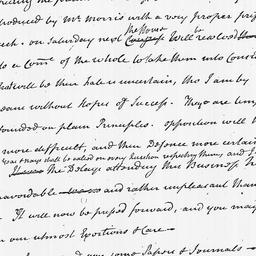 troduced by Mr Morris with a very proper prefa
on Saturday next the House will resolve
to a Com of the whole to take them into Consi
What will be their fate is uncertain, tho I am by
means without hopes of Success. They are
founded on plain Principles. opposition will
more difficult, and their Defence more certain
yeas & nays shall be called on every Question respecting them, and I
The Delays attending this Business
unavoidable and rather unpleasant than
It will now be pushed forward, and you may
on our utmost Exertions & Care —
you some Papers & Journals —